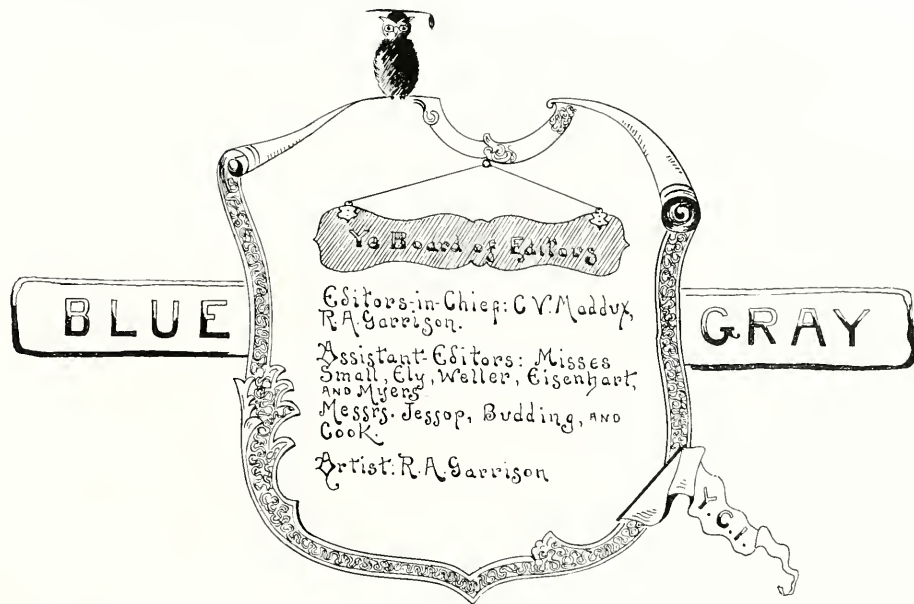 Ye Board of Editors
BLUE
GRAY
Editors-in-Chief: C V. Maddux,
R.A. Garrison.
Assistant-Editors: Misses
Small, Ely, Weller, Eisenhart,
AND Myers
Messrs. Jessop, Budding, AND
Cook.
Artist: R.A. Garrison
Y.C.I.